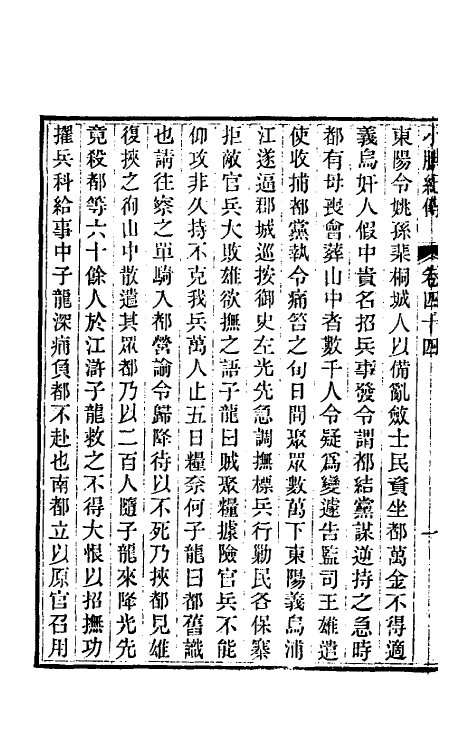 小腆紀傳 卷四十四 一
東陽令姚孫棐桐城人以備亂斂士民資坐都萬金不得適
義烏奸人假中貴名招兵事發令謂都結黨謀逆持之急時
都有母喪會葬山中者數千人令疑爲變遽告監司王雄遣
使收捕都黨執令痛笞之旬日間聚眾數萬下東陽義烏浦
江遂逼郡城巡按御史左光先急調撫標兵行勦民各保寨
拒敵官兵大敗雄欲撫之語子龍曰賊聚糧據險官兵不能
仰攻非久持不克我兵萬人止五日糧奈何子龍曰都舊識
也請往察之單騎入都營諭令歸降待以不死乃挾都見雄
復挾之徇山中散遣其眾都乃以二百人隨子龍來降光先
竟殺都等六十餘人於江滸子龍救之不得大恨以招撫功
擢兵科給事中子龍深痛負都不赴也南都立以原官召用